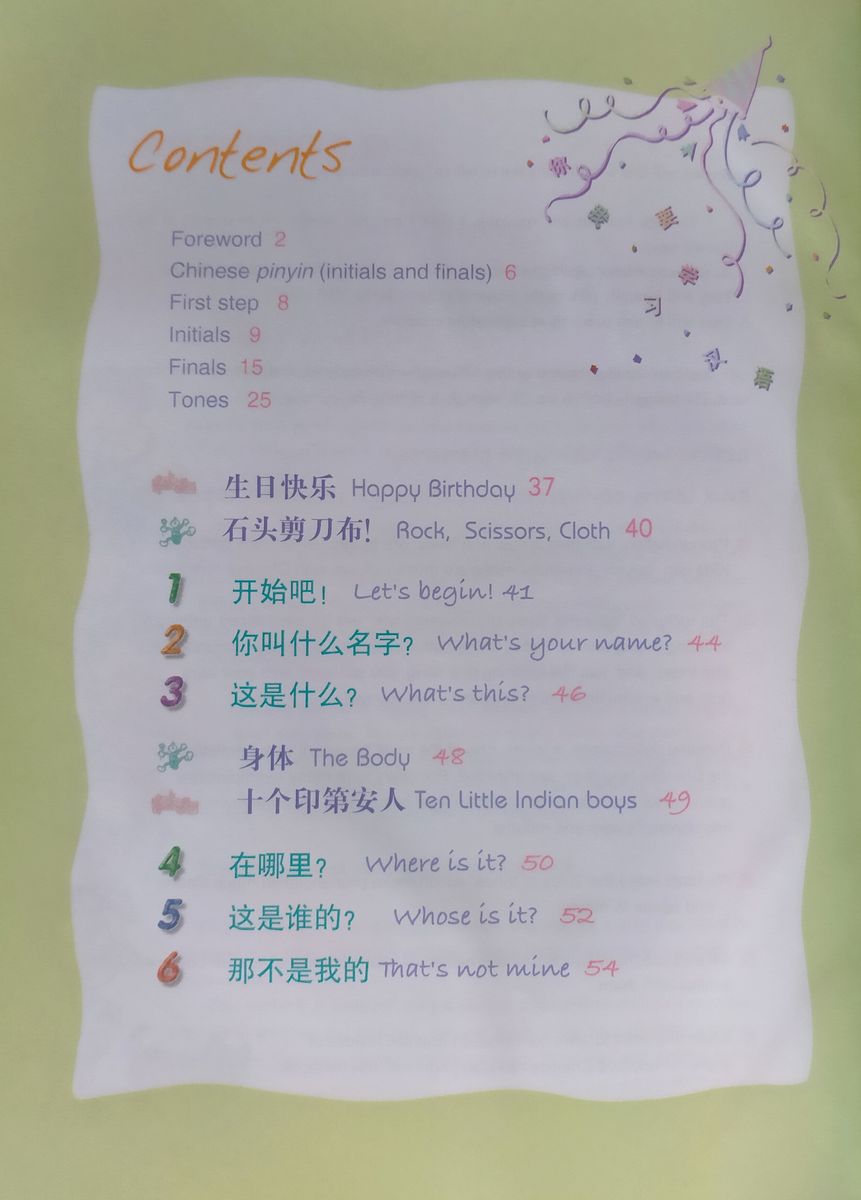 Contents
Foreword 2
Chinese pinyin (initials and finals) 6
First step 8
Initials 9
Finals 15
Tones 25
生日快乐 Happy Birthday 37
石头剪刀布! Rock, Scissors, Cloth 40
1 开始吧! Let's begin! 41
2 你叫什么名字? What's your name? 44
3 这是什么? What's this? 46
身体 The Body 48
十个印第安人 Ten Little Indian boys 49
4 在哪里? Where is it? 50
5 这是谁的? Whose is it? 52
6 那不是我的 That's not mine 54
习
语